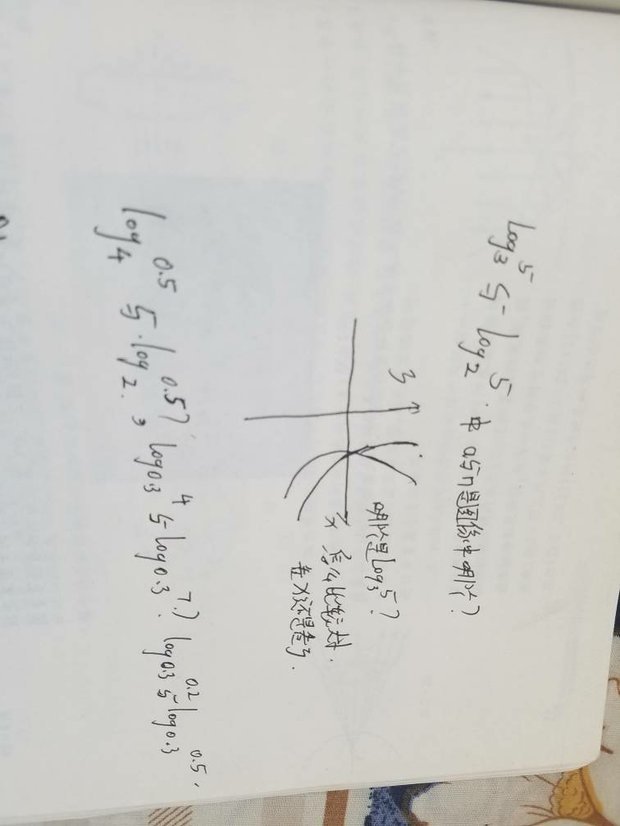 log₃⁵ 与 log₂⁵. 中 a与n是图像中哪个?
y
x
哪个是log₃⁵?
怎么比较大小.
看x还是看y.
log₄^0.5 与 log₂^0.5? log₀.₃⁴ 与 log₀.₃⁷? log₀.₃^0.2 与 log₀.₃^0.5.